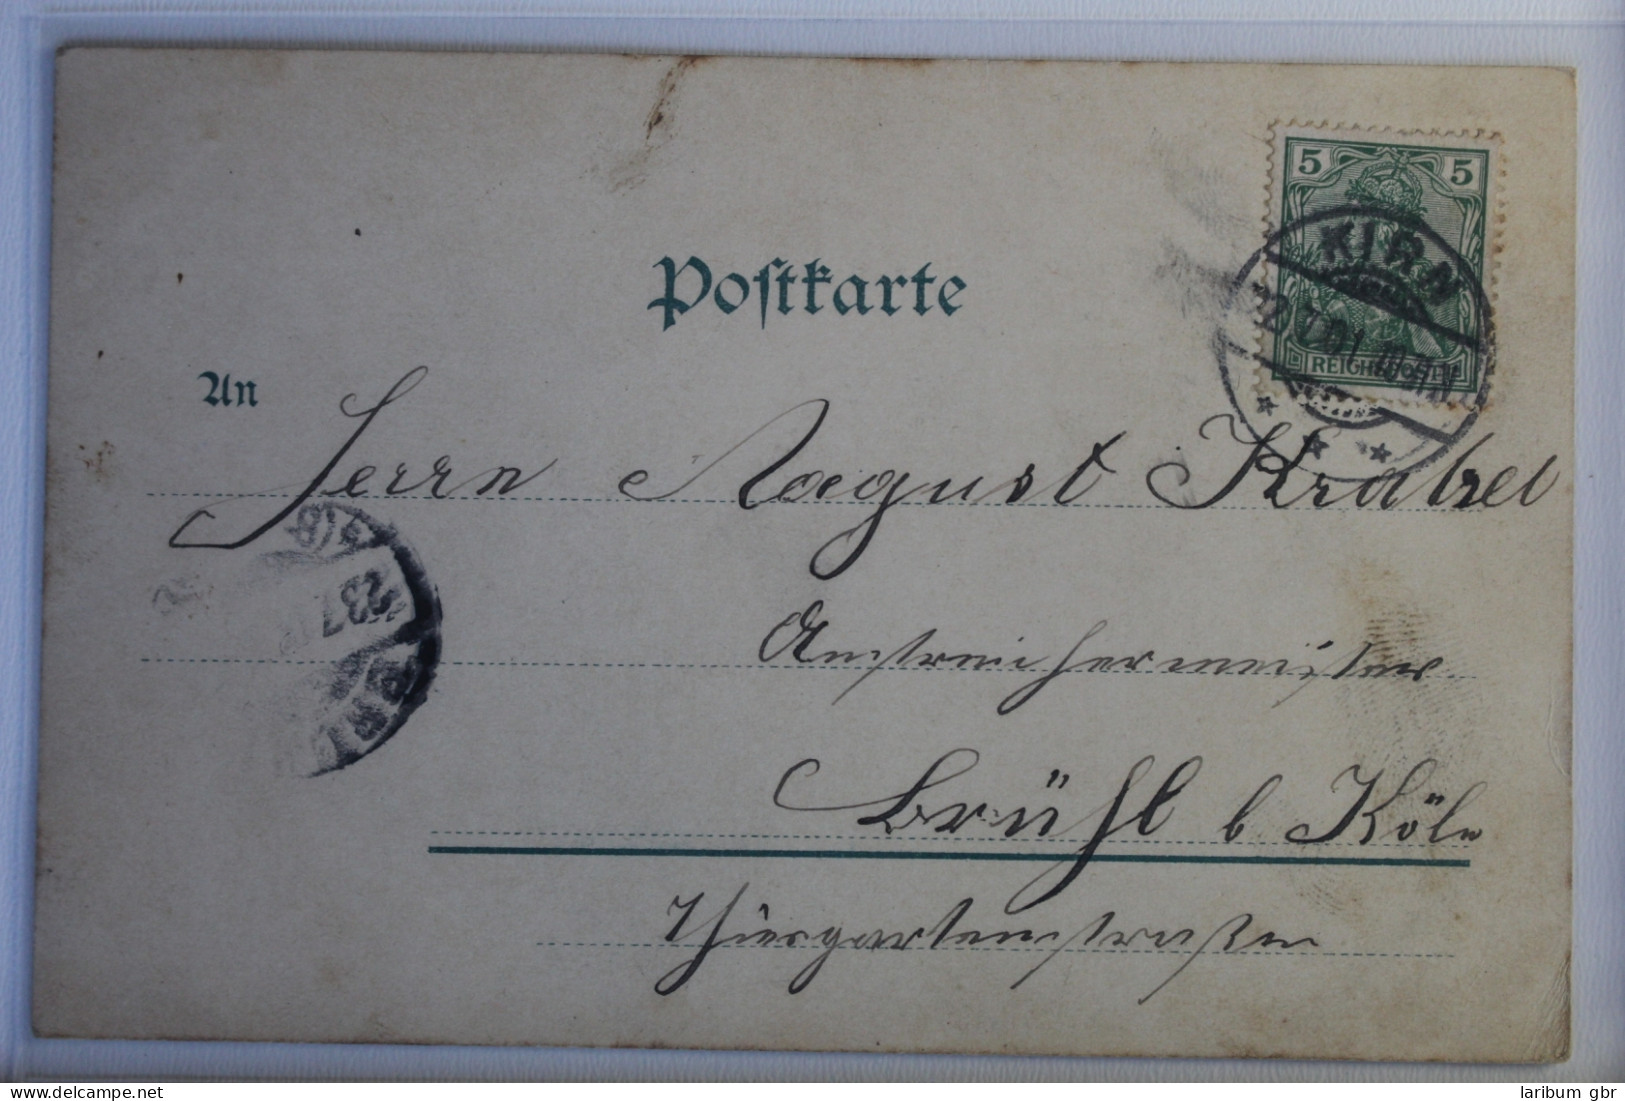 Postkarte
5 5
KIRN
22.7.01.
REICHSPOST
An
Herrn August Krabel
237
Anstreichermeister
Brühl b Köln
Thiergartenstraße
delcampe.net
laribum gbr